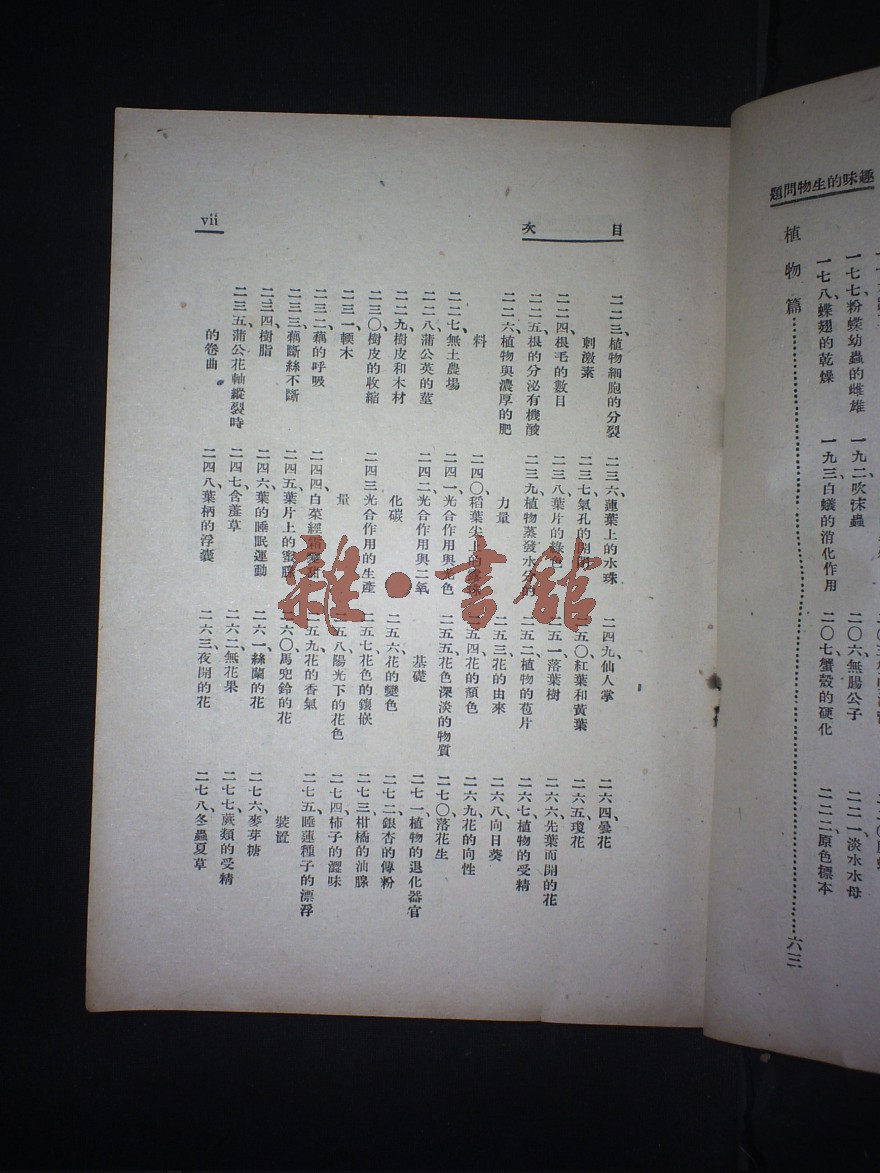 趣味的生物問題
植物篇……………………六三
一七七、粉蝶幼蟲的雌雄
一七八、蝶翅的乾燥
一九二、吹沫蟲
一九三、白蟻的消化作用
二〇六、無腸公子
二〇七、蟹殼的硬化
二二一、淡水水母
二二二、原色標本
目次
vii
二二三、植物細胞的分裂
刺激素
二二四、根毛的數目
二二五、根的分泌有機酸
二二六、植物與濃厚的肥
料
二二七、無土農場
二二八、蒲公英的莖
二二九、樹皮和木材
二三〇、樹皮的收縮
二三一、軟木
二三二、藕的呼吸
二三三、藕斷絲不斷
二三四、樹脂
二三五、蒲公花軸縱裂時
的卷曲
二三六、蓮葉上的水珠
二三七、氣孔的開閉
二三八、葉片的綠色
二三九、植物蒸發水分的
力量
二四〇、稻葉尖上的露珠
二四一、光合作用與光色
二四二、光合作用與二氧
化碳
二四三、光合作用的生產
量
二四四、白菜經霜變甜
二四五、葉片上的蜜腺
二四六、葉的睡眠運動
二四七、含羞草
二四八、葉柄的浮囊
二四九、仙人掌
二五〇、紅葉和黃葉
二五一、落葉樹
二五二、植物的苞片
二五三、花的由來
二五四、花的顏色
二五五、花色深淡的物質
基礎
二五六、花的變色
二五七、花色的鑲嵌
二五八、陽光下的花色
二五九、花的香氣
二六〇、馬兜鈴的花
二六一、絲蘭的花
二六二、無花果
二六三、夜開的花
二六四、曇花
二六五、瓊花
二六六、先葉而開的花
二六七、植物的受精
二六八、向日葵
二六九、花的向性
二七〇、落花生
二七一、植物的退化器官
二七二、銀杏的傳粉
二七三、柑橘的油腺
二七四、柿子的澀味
二七五、睡蓮種子的漂浮
裝置
二七六、麥芽糖
二七七、蕨類的受精
二七八、冬蟲夏草
雜·書館